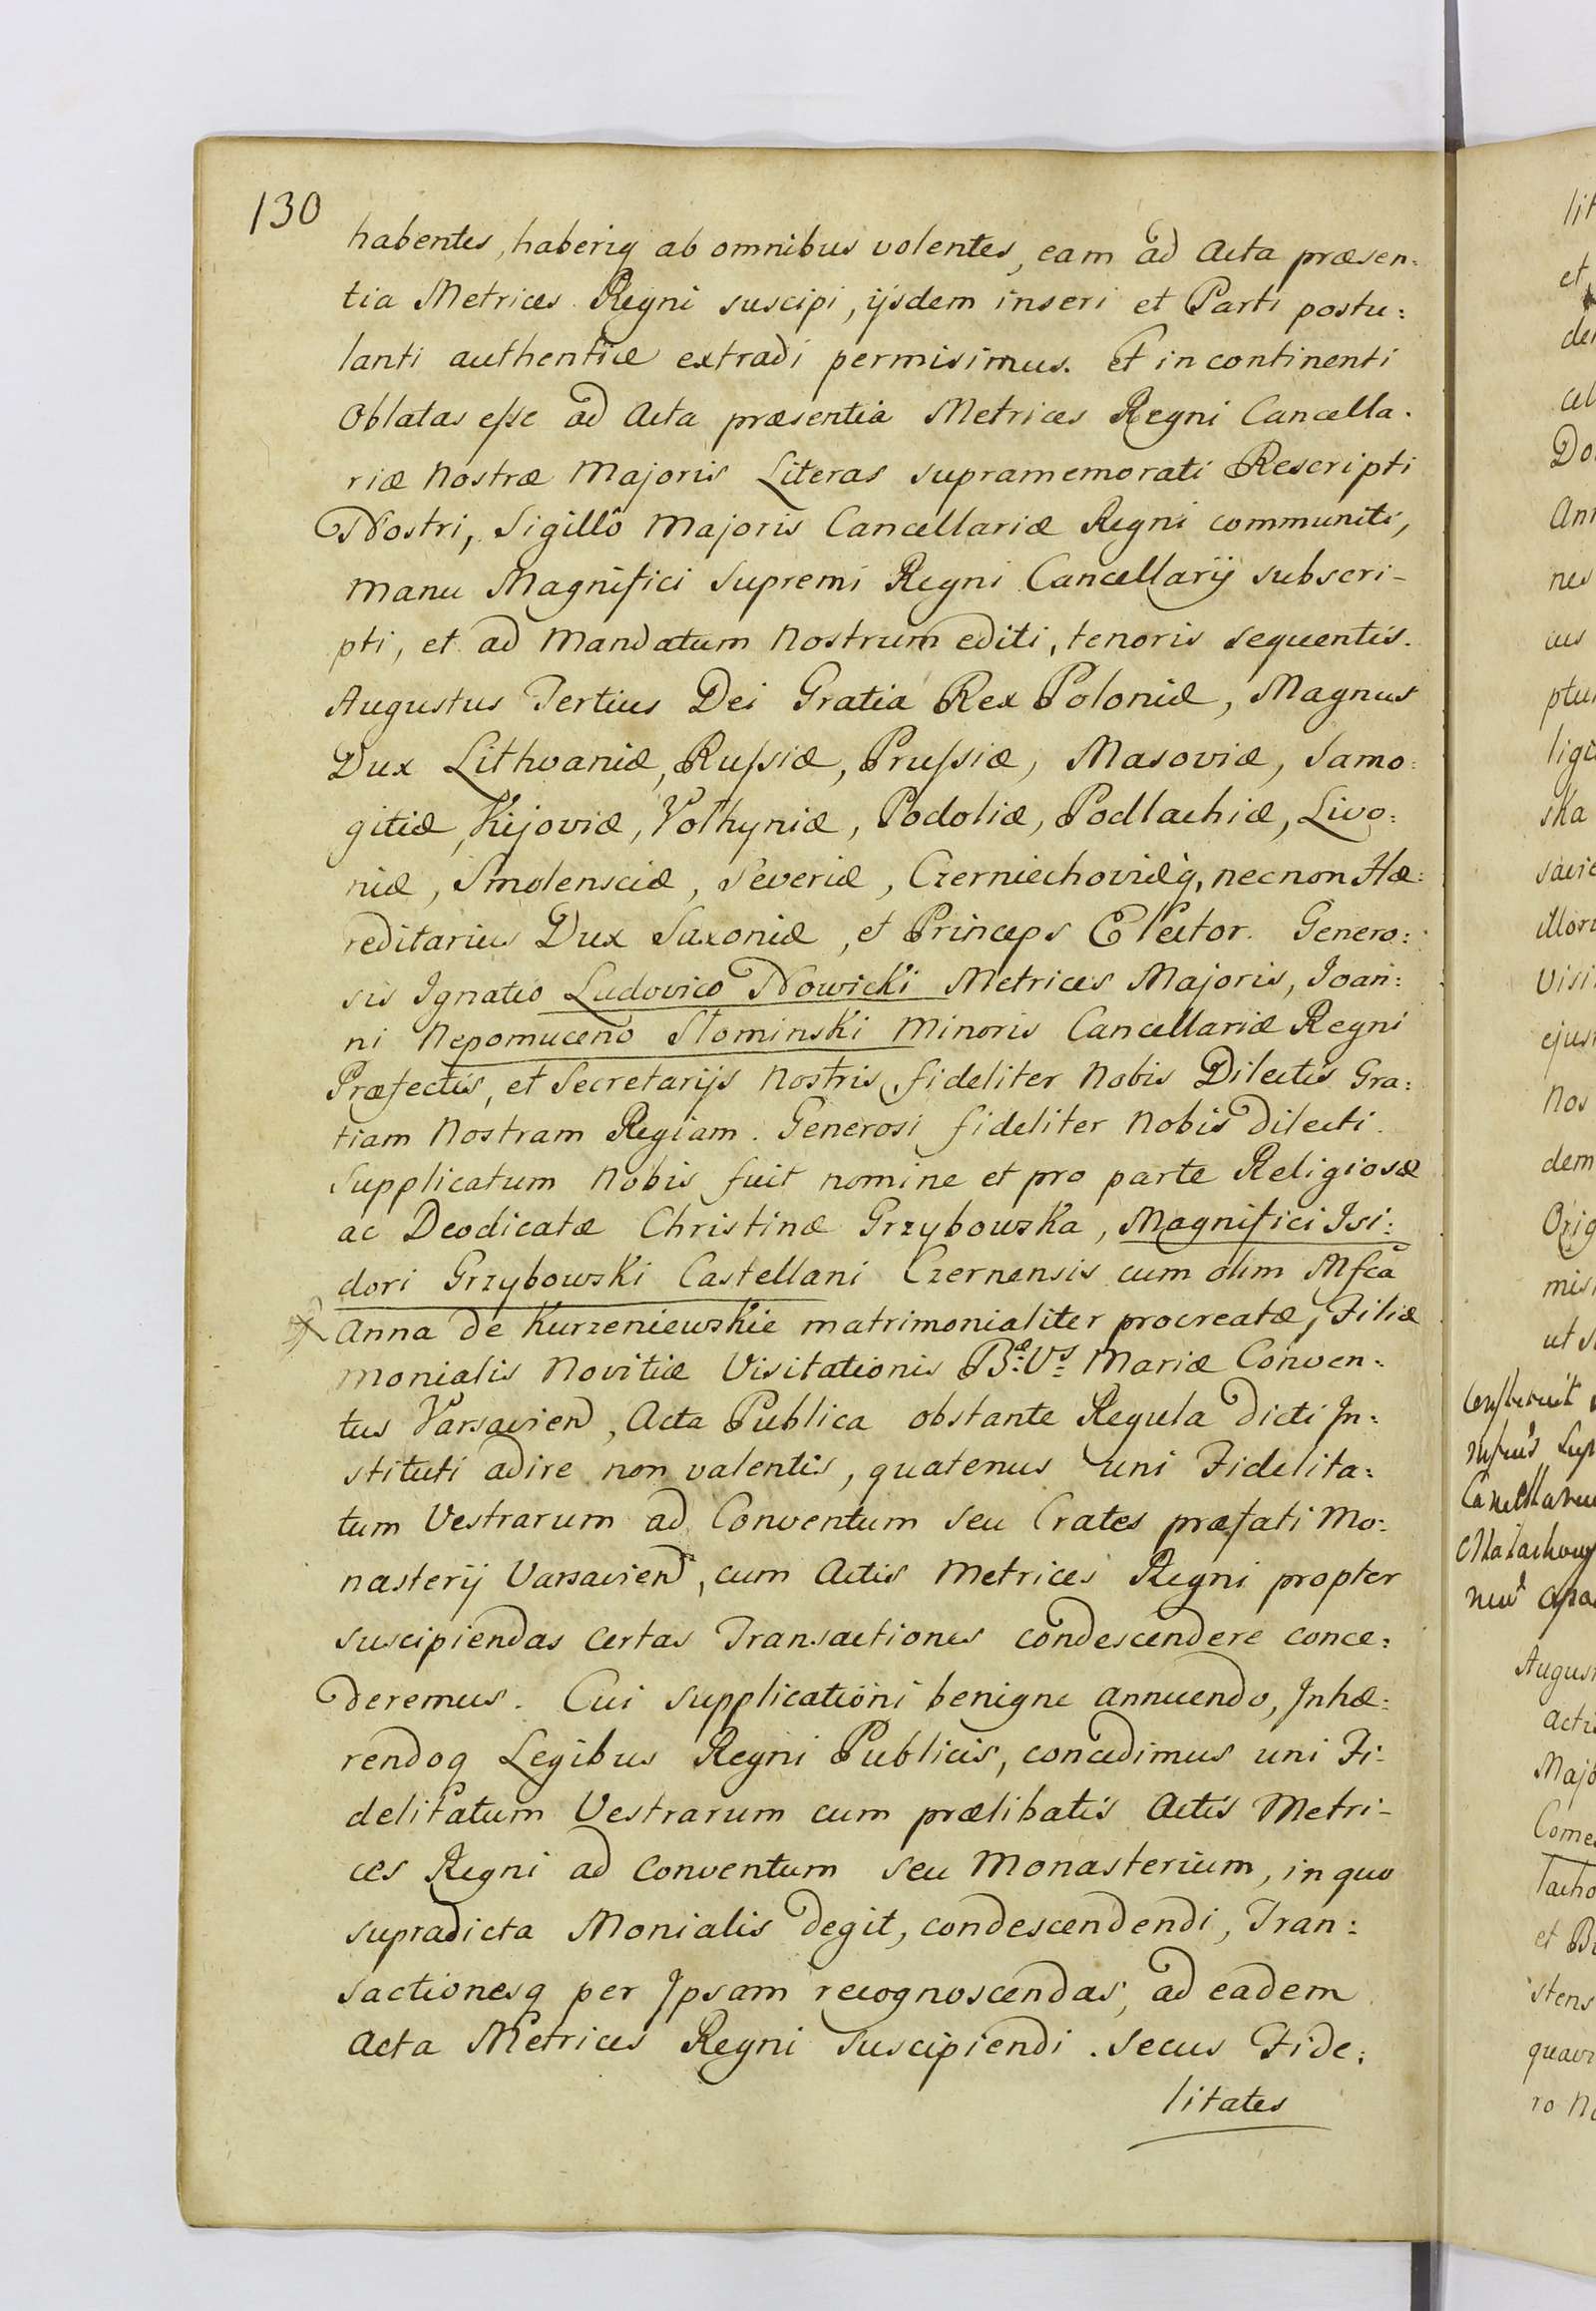 130
habentes, haberiq ab omnibus volentes, eam ad Acta præsen:
tia Metrices Regni suscipi, ijsdem inseri et Parti postu:
lanti authenticæ extradi permisimus. Et in continenti
Oblatas eſse ad Acta præsentia Metrices Regni Cancella:
riæ Nostræ Majoris Literas supramemorati Rescripti
Nostri, Sigillô Majoris Cancellariæ Regni communiti,
Manu Magnifici Supremi Regni Cancellarij subscri-
pti, et ad Mandatum Nostrum editi, tenoris sequentis.
Augustus Tertius Dei Gratia Rex Poloniæ, Magnus
Dux Lithvaniæ, Ruſsiæ, Pruſsiæ, Masoviæ, Samo:
gitiæ, Kijoviæ, Volhyniæ, Podoliæ, Podlachiæ, Livo:
niæ, Smolensciæ, Severiæ, Czerniechoviæq, necnon Hæ:
reditarius Dux Saxoniæ, et Princeps Elector. Genero:
sis Ignatio Ludovico Nowicki Metrices Majoris, Joan:
ni Nepomuceno Słominski Minoris Cancellariæ Regni
Præfectis, et Secretarijs Nostris, fideliter Nobis Dilectis Gra:
tiam Nostram Regiam. Generosi fideliter Nobis Dilecti.
Supplicatum Nobis fuit nomine et pro parte Religiosæ
ac Deodicatæ Christinæ Grzybowska, Magnifici Isi:
dori Grzybowski Castellani Czernensis cum olim Mfcâ
Anna de Kurzeniewskie matrimonialiter procreatæ, Filiæ
monialis Novitiæ Visitationis Bæ: Vs: Mariæ Conven:
tus Varsavien, Acta Publica obstante Regula dicti In:
stituti adire non valentis, quatenus uni Fidelita:
tum Vestrarum ad Conventum seu Crates præfati Mo:
nasterij Varsavien, cum Actis Metrices Regni propter
suscipiendas certas Transactiones condescendere conce:
deremus. Cui supplicationi benigne annuendo, Inhæ:
rendoq Legibus Regni Publicis, concedimus uni Fi:
delitatum Vestrarum cum prælibatis Actis Metri-
ces Regni ad Conventum seu Monasterium, in quo
supradicta Monialis degit, condescendendi, Tran:
sactionesq per Ipsam recognoscendas, ad eadem
Acta Metrices Regni suscipiendi. Secus Fide:
litates